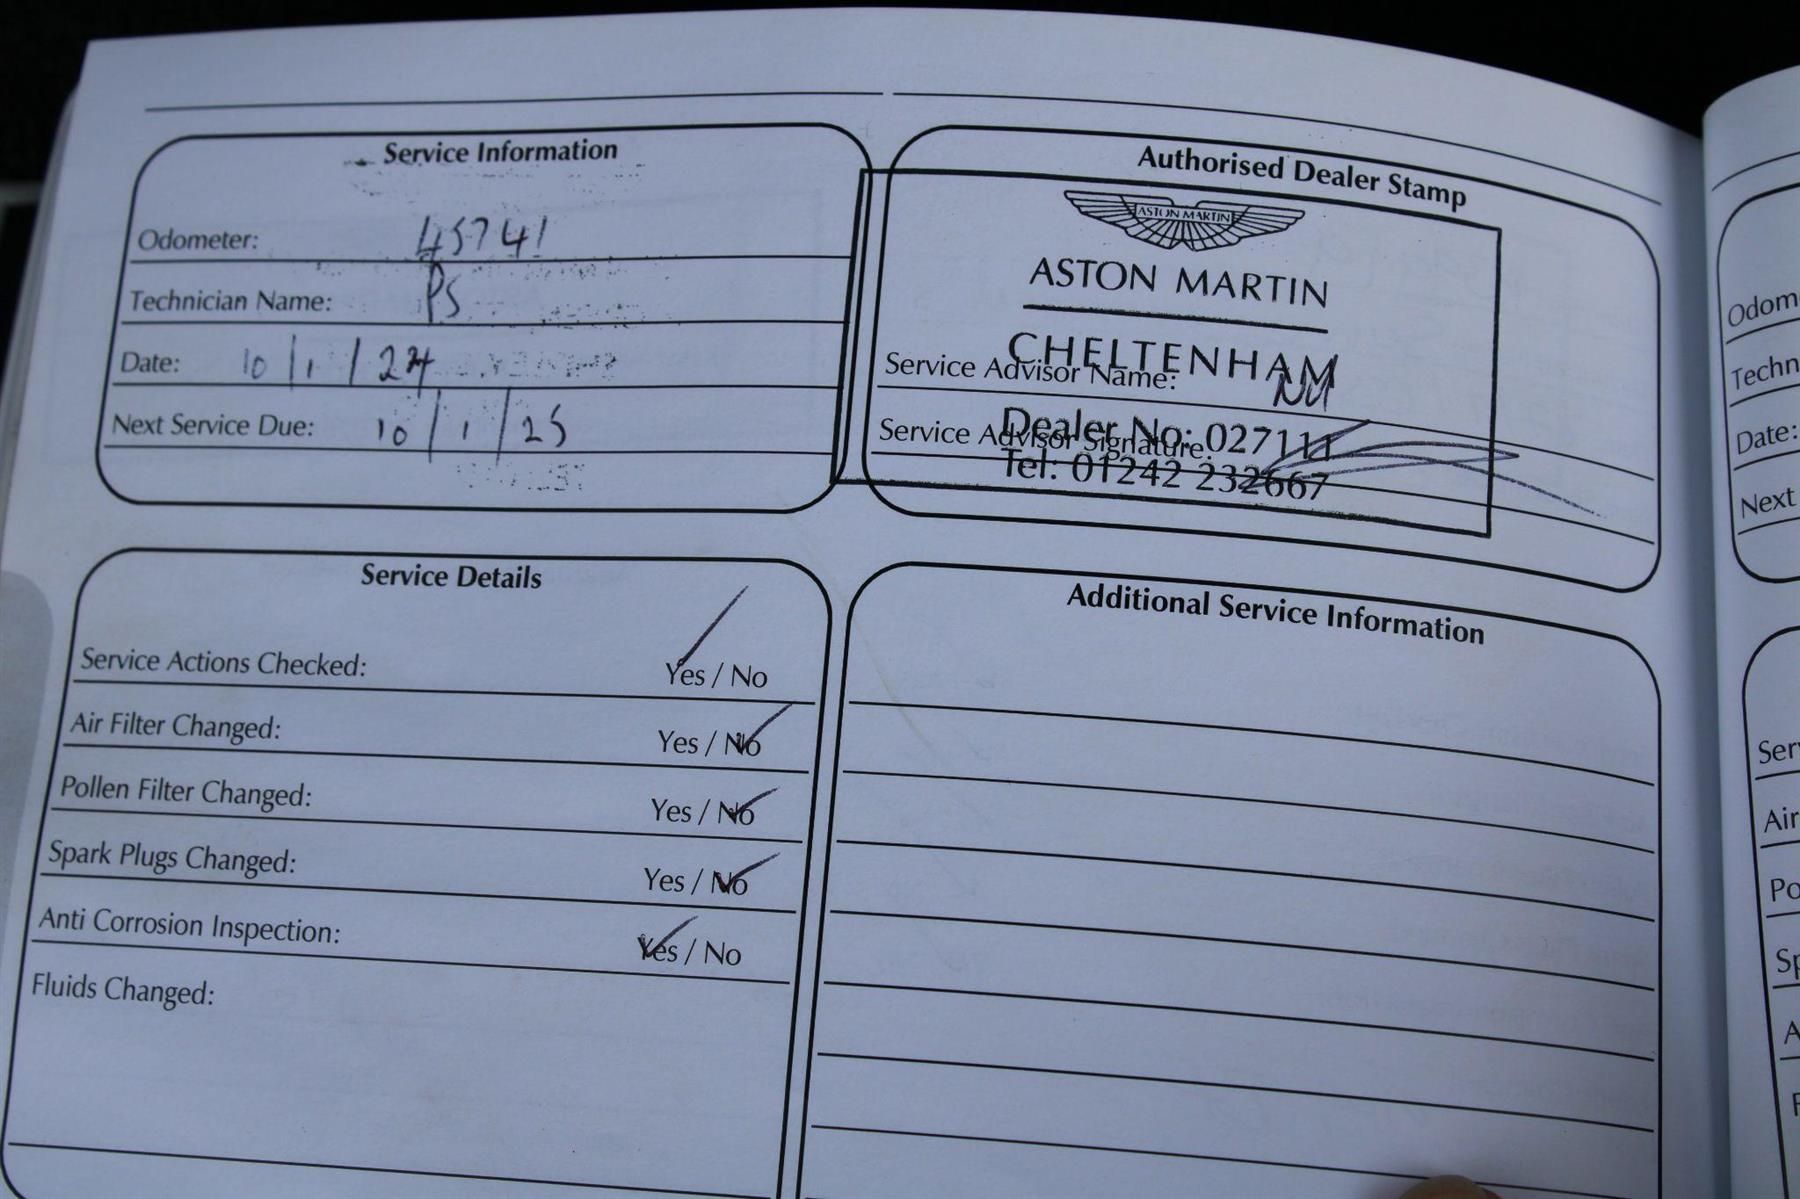 Service Information
Odometer: 45741
Technician Name: PS
Date: 10/1/24
Next Service Due: 10/1/25
Authorised Dealer Stamp
ASTON MARTIN
ASTON MARTIN
CHELTENHAM
Service Advisor Name: NM
Dealer No: 027111
Service Advisor Signature:
Tel: 01242 232667
Service Details
Service Actions Checked: Yes / No
Air Filter Changed: Yes / No
Pollen Filter Changed: Yes / No
Spark Plugs Changed: Yes / No
Anti Corrosion Inspection: Yes / No
Fluids Changed:
Additional Service Information
Odom
Techn
Date:
Next
Ser
Air
Po
Sp
A
F